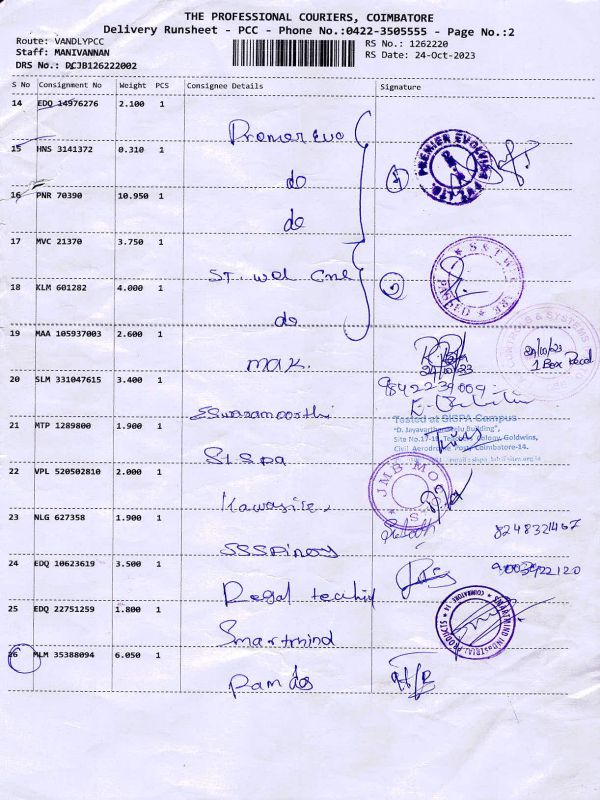 THE PROFESSIONAL COURIERS, COIMBATORE
Delivery Runsheet - PCC - Phone No.:0422-3505555 - Page No.:2
Route: VANDLYPCC
RS No.: 1262220
Staff: MANIVANNAN
RS Date: 24-Oct-2023
DRS No.: DCJB126222002
S No Consignment No Weight PCS Consignee Details Signature
14 EDQ 14976276 2.100 1
Premer Evo
15 HNS 3141372 0.310 1
do
PREMIER EVOLVICS PVT. LTD.
16 PNR 70390 10.950 1
do
17 MVC 21370 3.750 1
ST. wel
S & T WEL
PASSED
18 KLM 601282 4.000 1
do
19 MAA 105937003 2.600 1
MAK.
& SYSTEMS
24/10/23
1 Box Recd
24/10/23
20 SLM 331047615 3.400 1
9842239009
Eswaramoorthi
21 MTP 1289800 1.900 1
Tested at SISPA Campus
"D. Jayavarthanavelu Building",
Site No.17-19, Colony, Goldwins,
Civil Aerodrome Post, Coimbatore-14.
SISPA
22 VPL 520502810 2.000 1
JMB-MO
23 NLG 627358 1.900 1
8248321467
24 EDQ 10623619 3.500 1
Regal
25 EDQ 22751259 1.800 1
SMARTMIND INDUSTRIAL PRODUCTS
COIMBATORE
Smartmind
26 MLM 35388094 6.050 1
Ramdos